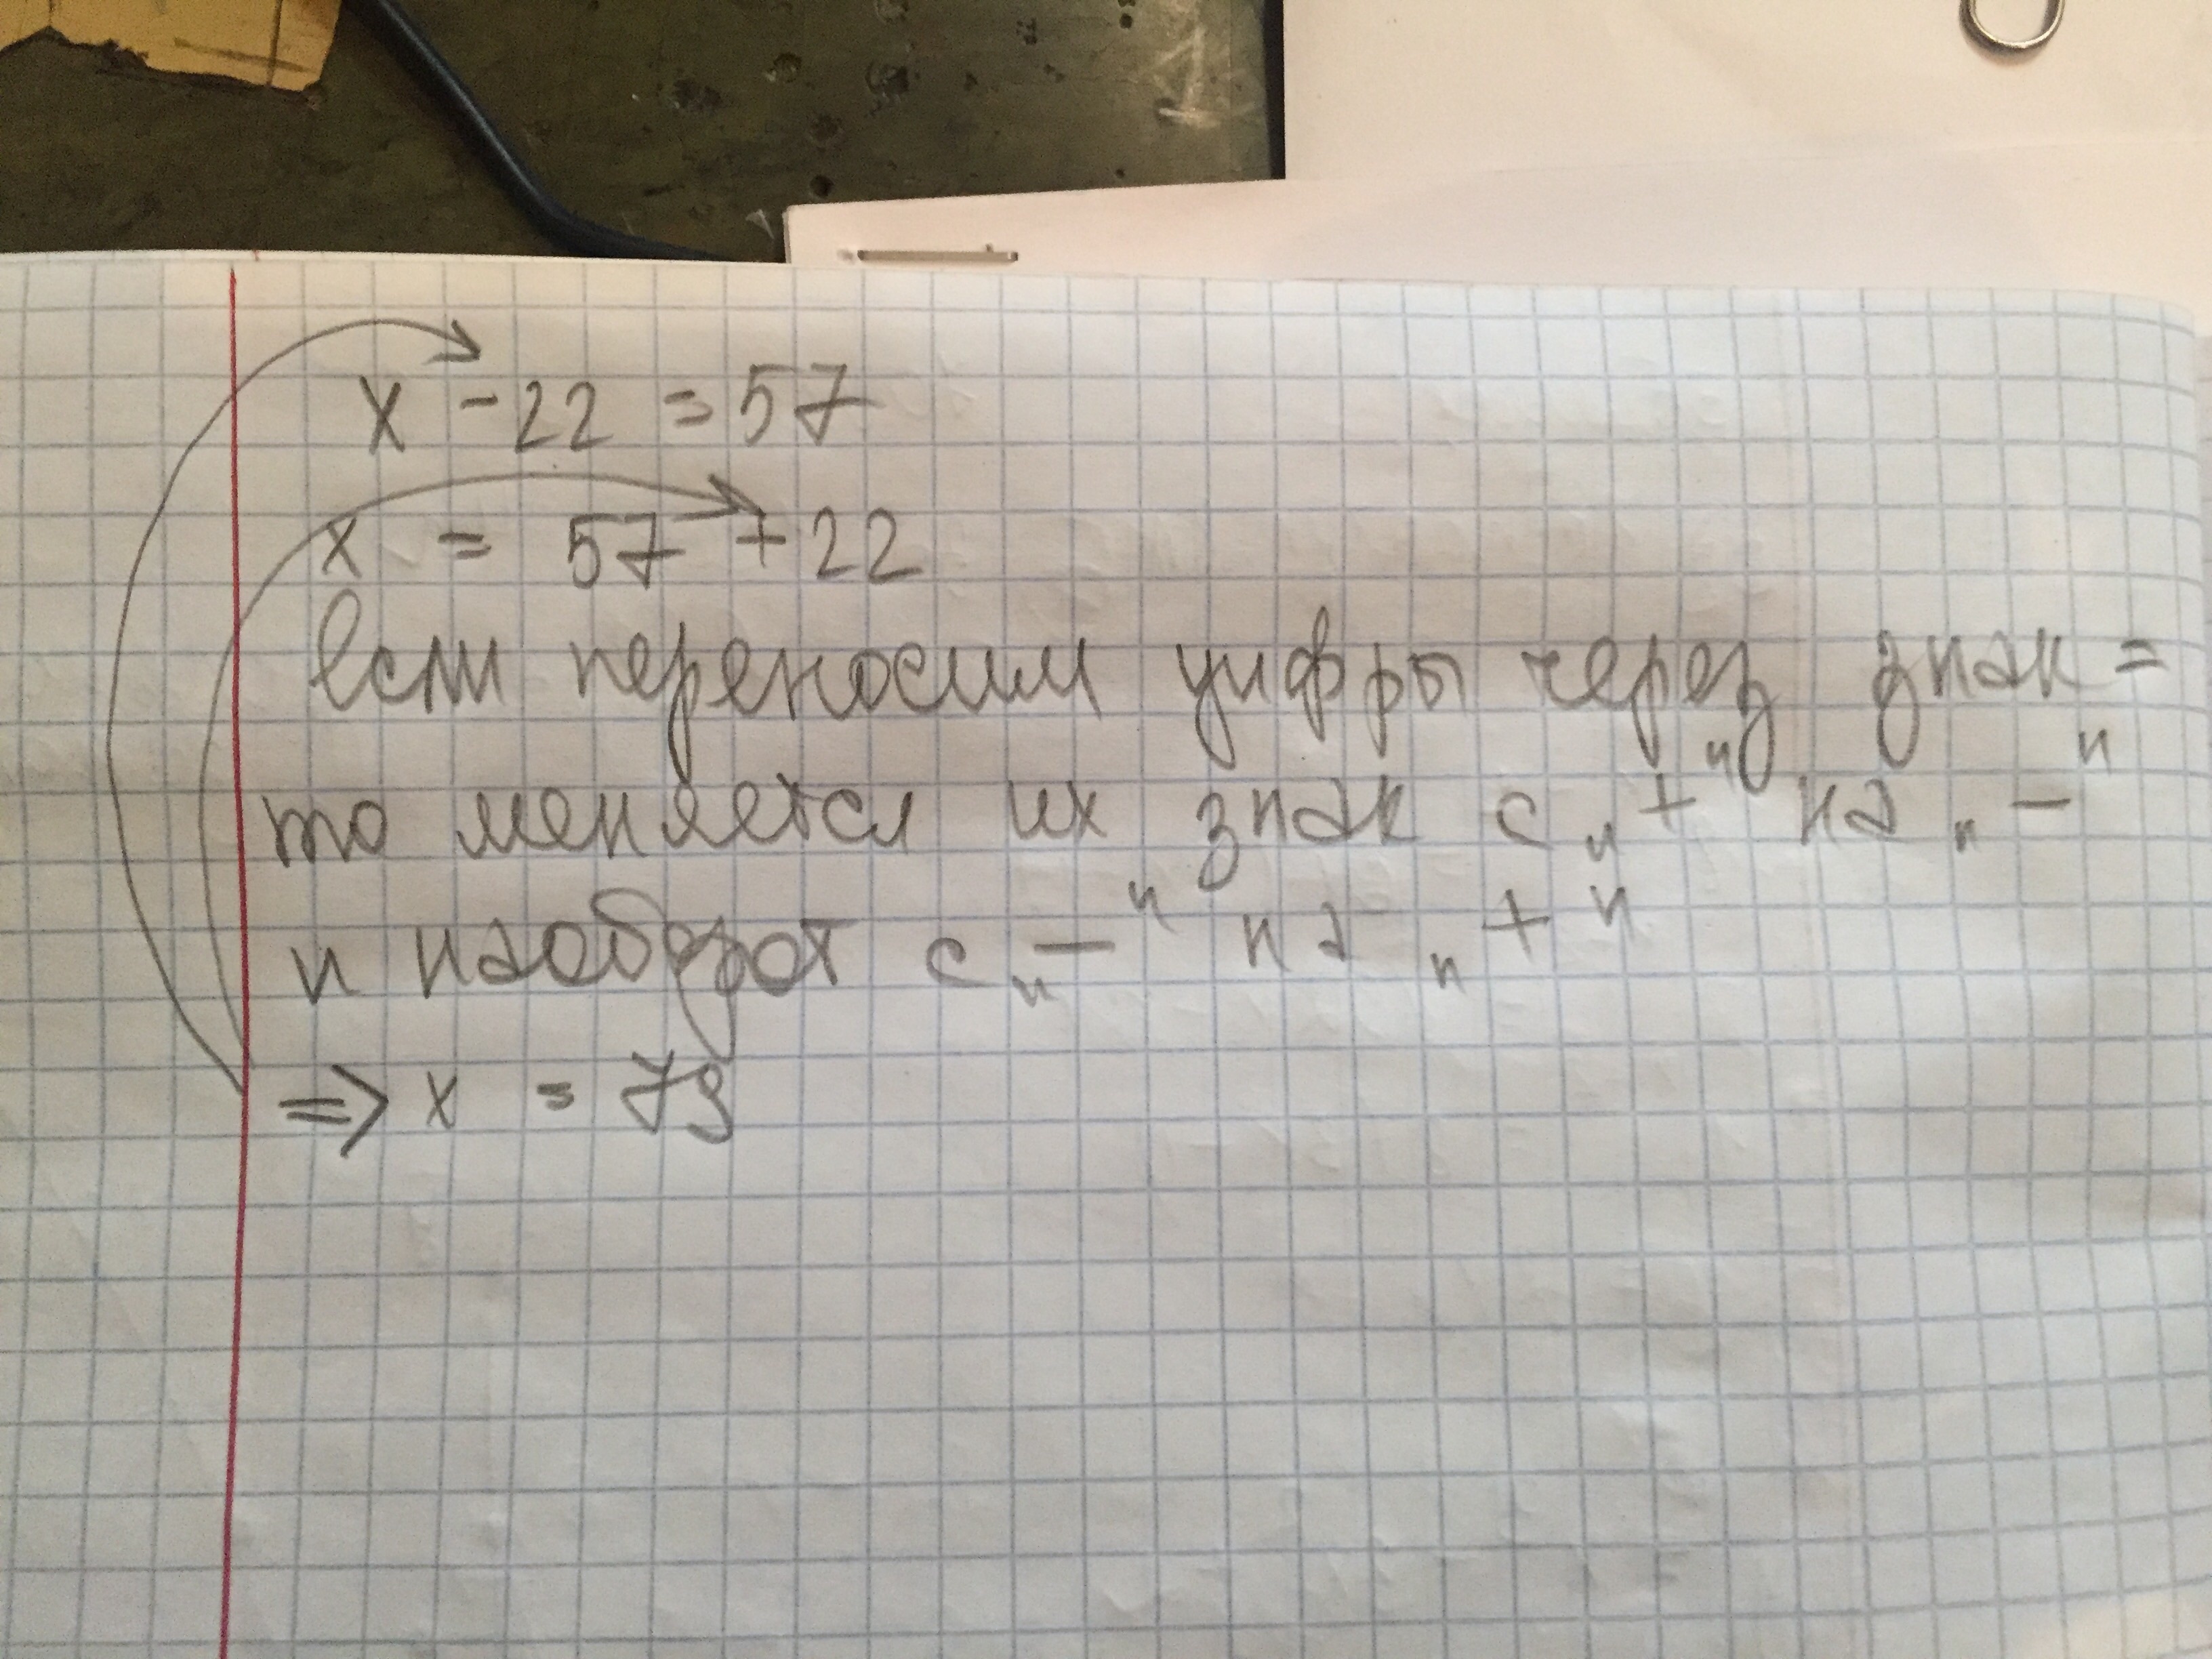 x - 22 = 57
x = 57 + 22
Если переносим цифры через знак =
то меняется их знак с „+" на „-"
и наоборот с „-" на „+"
=> x = 79